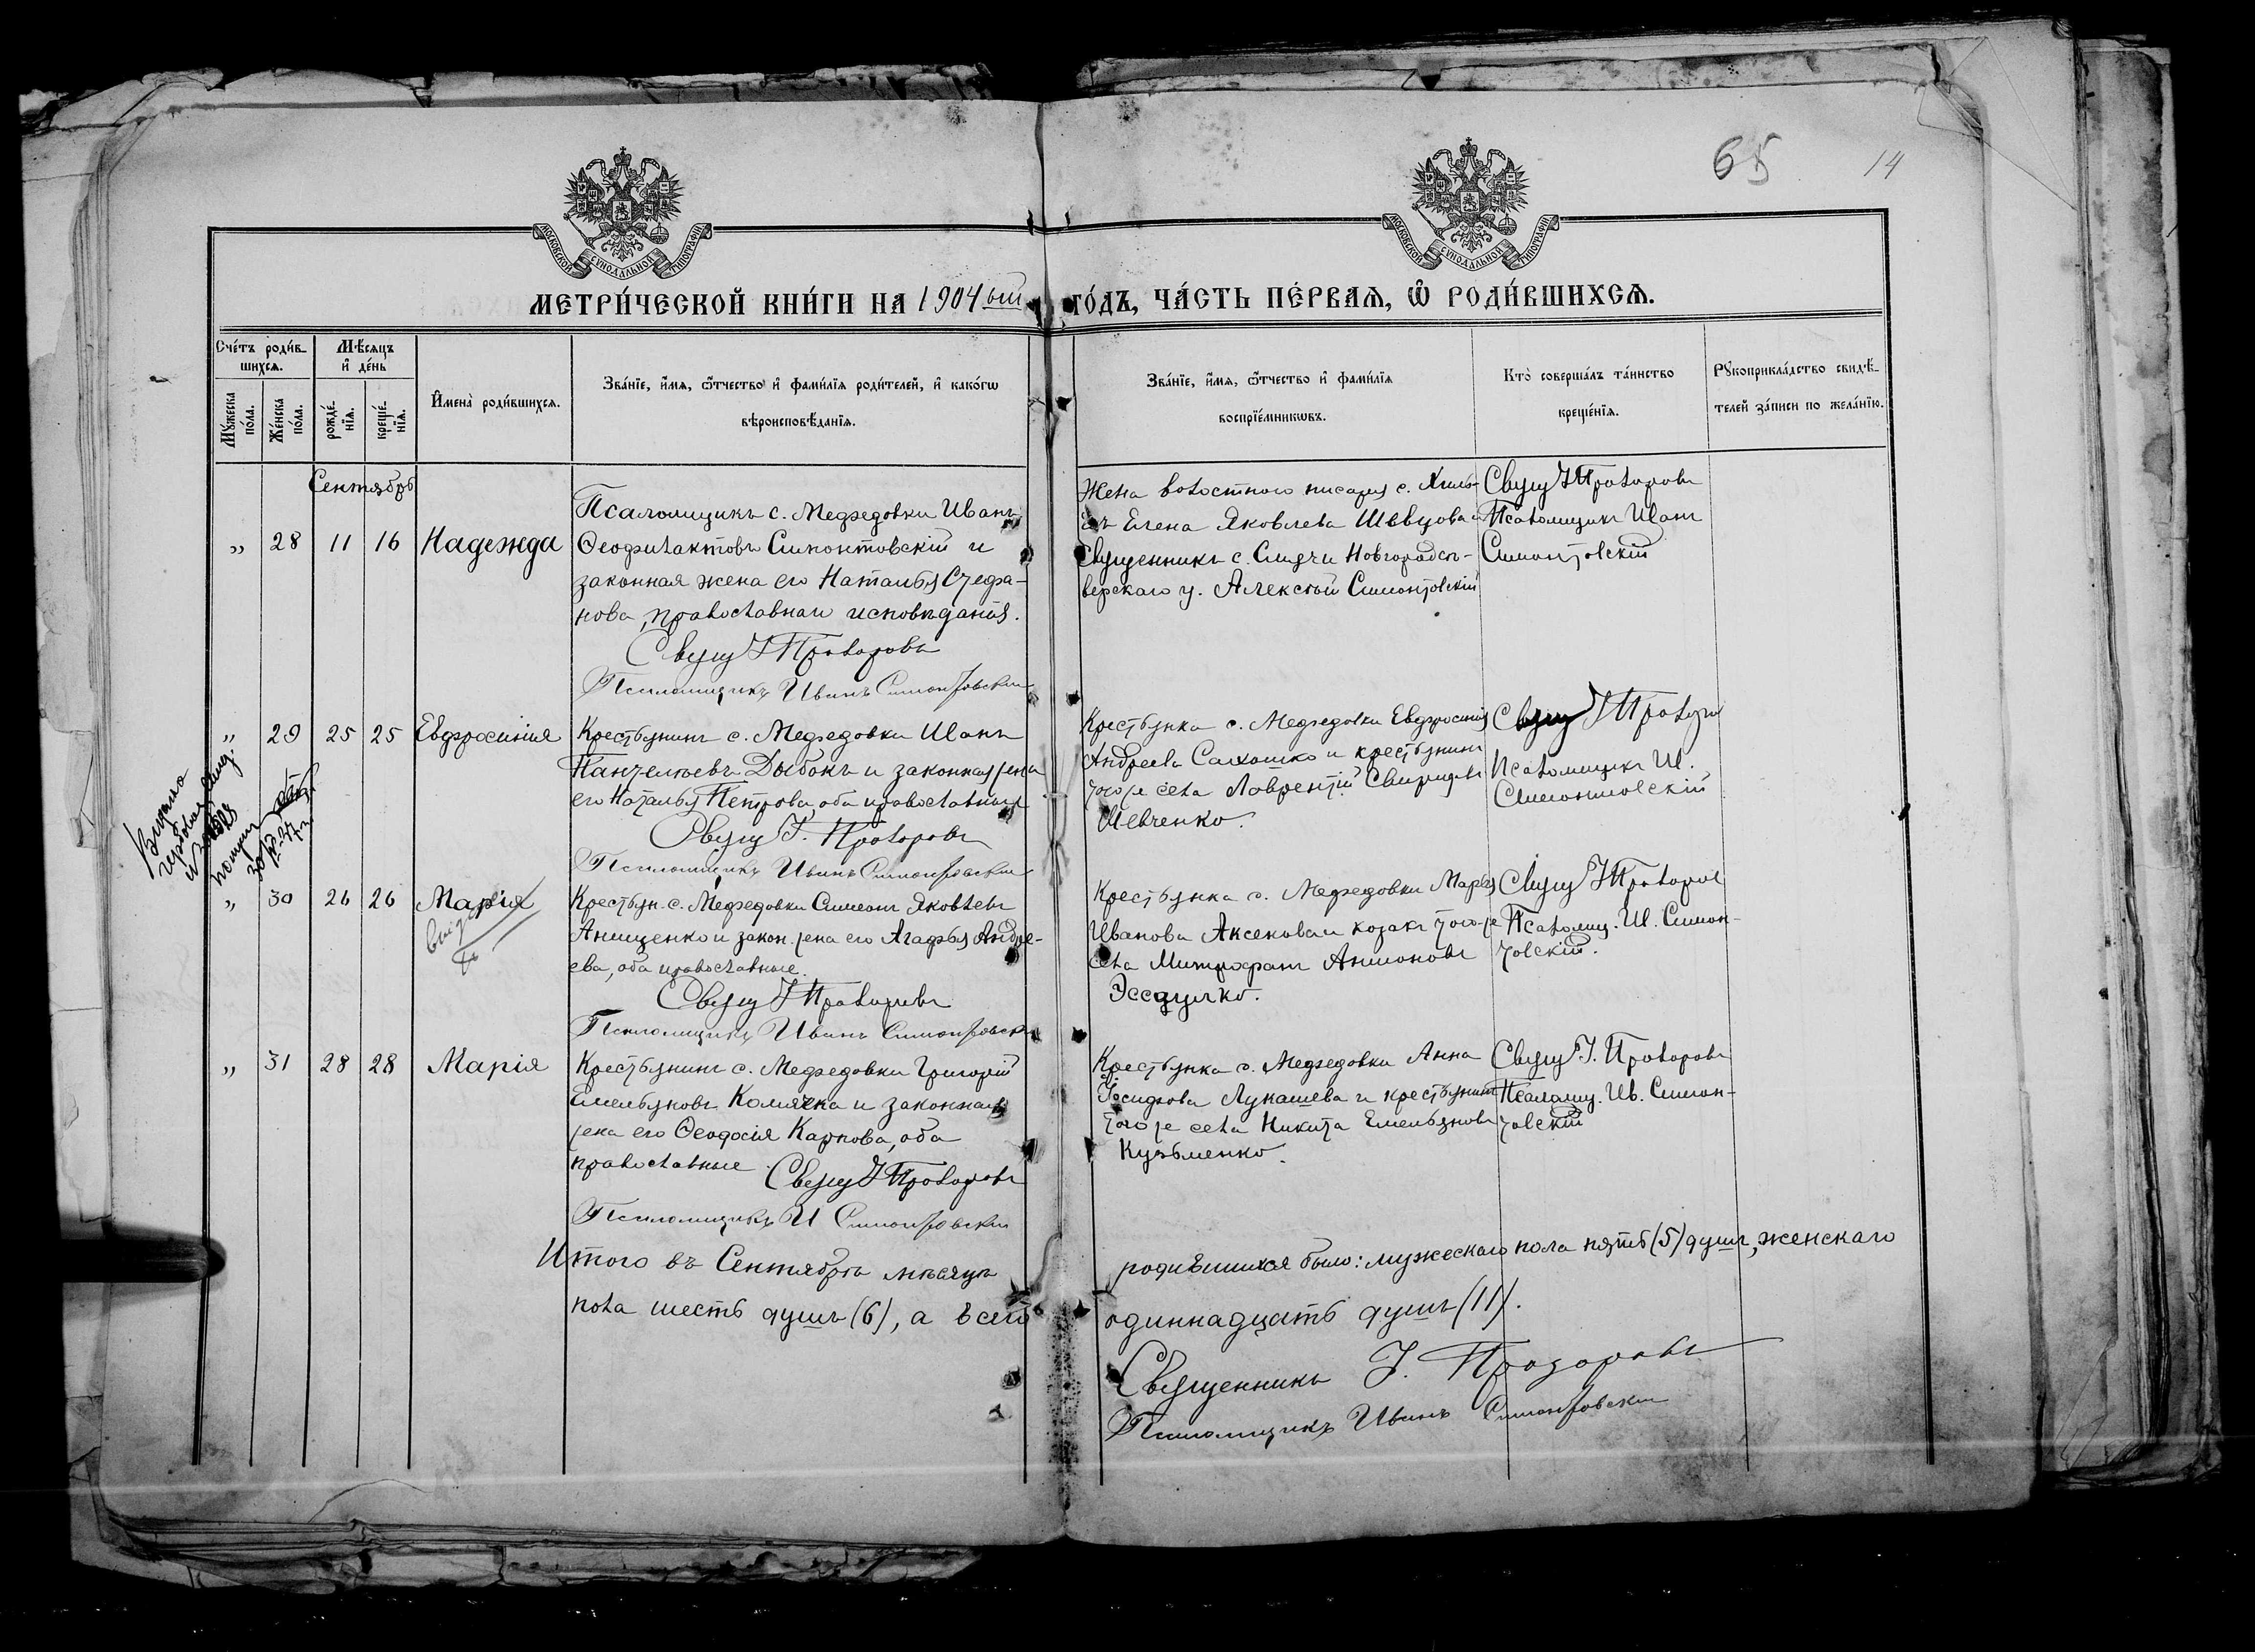 65 14
МОСКОВСКОЙ СУНОДАЛЬНОЙ ТИПОГРАФІИ
МОСКОВСКОЙ СУНОДАЛЬНОЙ ТИПОГРАФІИ
МЕТРИ́ЧЕСКОЙ КНИ́ГИ НА 1904 ый
ГО́ДЪ, ЧА́СТЬ ПЕ́РВАѦ, Ѡ҆ РОДИ́ВШИХСѦ.
Сче́тъ роди́в-
шихсѧ.
Мѣ́сѧцъ
и҆ де́нь
Мꙋ́жеска
по́ла.
Же́нска
по́ла.
рожде́-
нїѧ.
креще́-
нїѧ.
И҆мена̀ роди́вшихсѧ.
Зва́нїе, и҆́мѧ, ѻ҆́тчество и҆ фами́лїѧ роди́телей, и҆ како́гѡ
вѣроисповѣ́данїѧ.
Зва́нїе, и҆́мѧ, ѻ҆́тчество и҆ фами́лїѧ
воспрїе́мникѡвъ.
Кто̀ соверша́лъ та́инство
креще́нїѧ.
Рꙋкоприкла́дство свидѣ́-
телей за́писи по жела́нїю.
Сентябрь
„ 28 11 16 Надежда
Псаломщикъ с. Медведовки Иванъ
Ѳеофилактовъ Симонтовскій и
законная жена его Наталья Стефа-
нова, православнаго исповѣданія.
Свящ І Прохоровъ
Псаломщикъ Иванъ Симонтовскій
Жена волостного писаря с.
Елена Яковлева Шевцова и
Священникъ с. Новгородсѣ-
верскаго у. Алексѣй Симонтовскій
Свящ І Прохоровъ
Псаломщикъ Иванъ
Симонтовскій
„ 29 25 25 Евфросинія
Крестьянинъ с. Медведовки Иванъ
Пантелеевъ Дыбокъ и законная жена
его Наталья Петрова, оба православные
Свящ І. Прохоровъ
Псаломщикъ Иванъ Симонтовскій
Крестьянка с. Медведовки Евфросинія
Андреева и крестьянинъ
того же села Лаврентій Свиридовъ
Шевченко.
Свящ І Прохоровъ
Псаломщикъ Ив.
Симонтовскій
Выдано
„ 30 26 26 Марія
Крестьян. с. Медведовки Симеонъ Яковлевъ
Анищенко и закон. жена его Агафья Андре-
ева, оба православные.
Свящ І Прохоровъ
Псаломщикъ Иванъ Симонтовскій
Крестьянка с. Медведовки Марья
Иванова Аксенова и козакъ того же
села Митрофанъ Антоновъ
Свящ І Прохоровъ
Псаломщ. Ив. Симон-
товскій.
„ 31 28 28 Марія
Крестьянинъ с. Медведовки Григорій
Емельяновъ и законная
жена его Ѳеодосія Карпова, оба
православные Свящ І Прохоровъ
Псаломщикъ И Симонтовскій
Крестьянка с. Медведовки Анна
Іосифова Лукашева и крестьянинъ
того же села Никита Емельяновъ
Кузьменко.
Свящ І. Прохоровъ
Псаломщ. Ив. Симон-
товскій
Итого въ Сентябрѣ мѣсяцѣ родившихся было: мужескаго пола пять (5) душъ, женскаго
пола шесть душъ (6), а всего одиннадцать душъ (11).
Священникъ І. Прохоровъ
Псаломщикъ Иванъ Симонтовскій